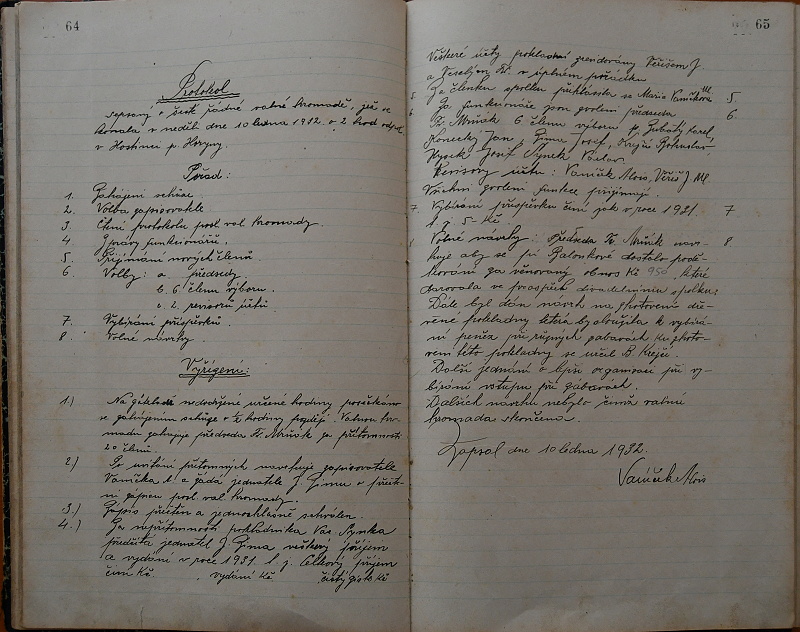 64
Protokol
sepsaný o šesté řádné valné hromadě, jež se
konala v neděli dne 10 ledna 1932 o 2 hod odpol.
v Hostinci p. Koryny.
Pořad:
1. Zahájení schůze
2. Volba zapisovatele
3. Čtení protokolu posl. val. hromady.
4 Zprávy funkcionářů.
5 Přijímání nových členů
6 Volby: a předsedy
b. 6 členů výboru.
c. 2. revisorů účtů
7. Vybírání příspěvků.
8. Volné návrhy.
Vyřízení:
1.) Na základě nedodržení určené hodiny
se zahájením schůze o ½ hodiny později. Valnou hro-
madu zahajuje předseda Fr. Mrňák za přítomnosti
20 členů.
2.) Po uvítání přítomných navrhuje zapisovatele
Vaníčka A. a žádá jednatele J. Zimu o přečte-
ní zápisu posl. val. hromady.
3.) Zápis přečten a jednohlasně schválen.
4.) Za nepřítomnosti pokladníka Vác. Synka
jednatel J. Zima veškerý příjem
a vydání v roce 1931. t. j. Celkový příjem
činí Kč. , vydání Kč čistý zisk Kč
65
Veškeré účty pokladní revidovány Verišem J.
a Fr. v úplném pořádku
5 Za členku spolku přihlásila se Marie Vaníčková ml. 5
6 Za funkcionáře jsou zvoleni předseda 6
Fr. Mrňák 6 členů výboru p. Zubatý Karel,
Konecký Jan, Zima Josef, Krejčí Bohuslav,
Vysek Josef Synek Václav.
Revisory účtů: Vaníček Alois, Veriš J. Ml.
Všichni zvolení funkce přijímají.
7. Vybírání příspěvku činí jak v roce 1931. 7
t. j. 5 Kč
8 Volné návrhy: Předseda Fr. Mrňák navr- 8
huje aby se pí Balonkové dostalo podě-
kování za věnovaný obnos Kč 950, které
darovala ve prospěch divadelnímu spolku.
Dále byl dán návrh na zhotovení dře-
věné pokladny která by sloužila k vybírá-
ní peněz při různých zábavách Ku zhoto-
vení této pokladny se B. Krejčí.
Další jednání o lepší organisaci při vy-
bírání vstupu při zábavách.
Dalších návrhů nebylo čímž valná
hromada skončena.
Zapsal dne 10 ledna 1932.
Vaníček Alois